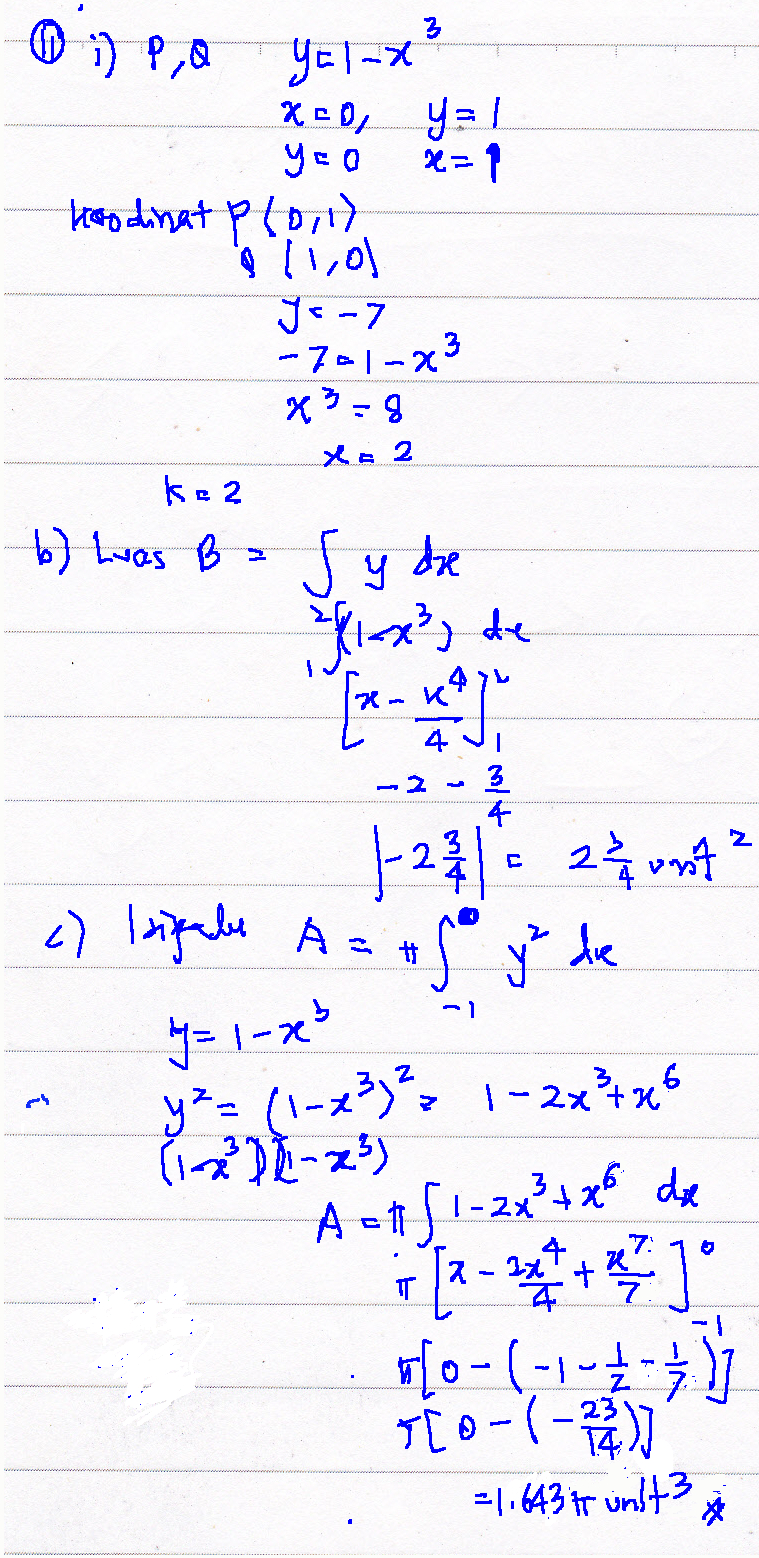 ⑪ i) P, Q y = 1 - x³
x = 0, y = 1
y = 0 x = 1
koodinat P (0, 1)
Q (1, 0)
y = -7
-7 = 1 - x³
x³ = 8
x = 2
k = 2
b) Luas B = ∫ y dx
₁²∫(1 - x³) dx
[x - x⁴/4]₁²
-2 - 3/4
|-2 3/4| = 2 3/4 unit²
c) A = π∫₋₁⁰ y² dx
y = 1 - x³
y² = (1 - x³)² = 1 - 2x³ + x⁶
(1 - x³)(1 - x³)
A = π∫ 1 - 2x³ + x⁶ dx
π[x - 2x⁴/4 + x⁷/7]₋₁⁰
π[0 - (-1 - 1/2 - 1/7)]
π[0 - (-23/14)]
= 1.643 π unit³